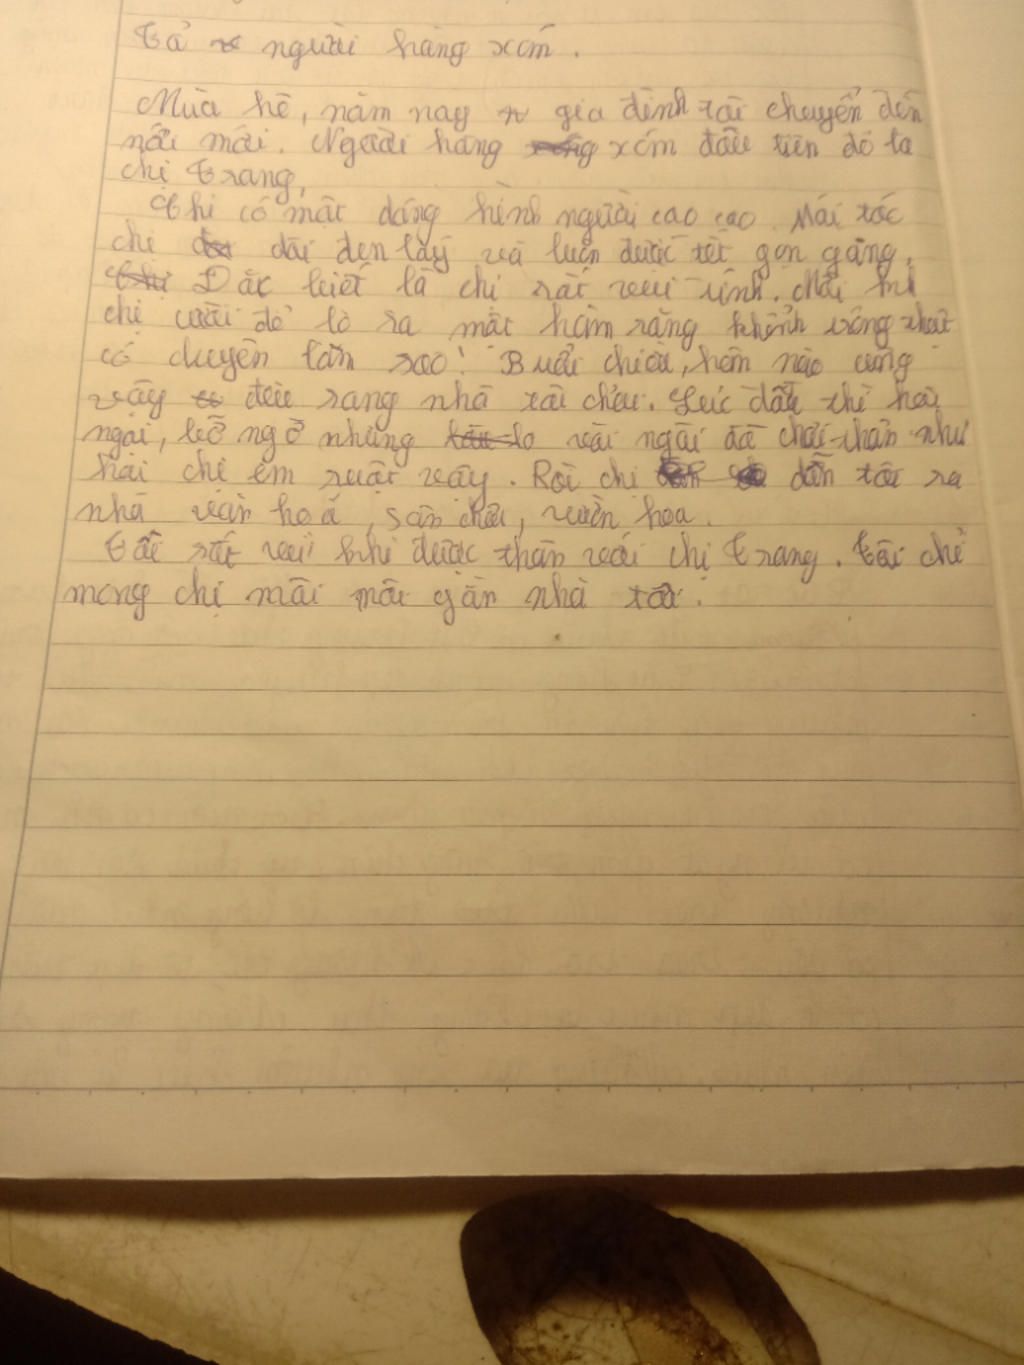 Tả người hàng xóm.
Mùa hè, năm nay gia đình tôi chuyển đến
nơi mới. Người hàng xóm đầu tiên đó là
chị Trang,
Chị có một dáng hình người cao cao. Mái tóc
chị dài đen láy và luôn được tết gọn gàng.
Đặc biết là chị rất vui tính. Mỗi khi
chị cười để lộ ra một hàm răng khểnh trông thật
có duyên làm sao! Buổi chiều, hôm nào cũng
vậy đều sang nhà tôi chơi. Lúc đầu thì hơi
ngại, bỡ ngỡ nhưng vài ngày đã chơi thân như
hai chị em ruột vậy. Rồi chị dẫn tôi ra
nhà văn hoá, sân chơi, vườn hoa.
Tôi rất vui khi được thân với chị Trang. Tôi chỉ
mong chị mãi mãi gần nhà tôi.